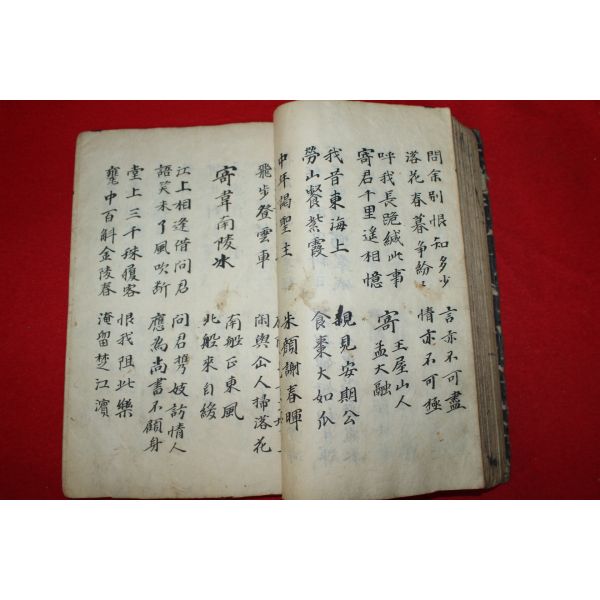 問余別恨知多少
落花春暮爭紛〻
言亦不可盡
情亦不可極
呼我長跪緘此事
寄君千里遙相憶
寄王屋山人
孟大融
我昔東海上
勞山餐紫霞
親見安期公
食棗大如瓜
中年謁聖主
朱顏謝春暉
飛步登雲車
閑與仚人掃落花
寄韋南陵冰
南船正東風
北船來自緩
江上相逢借問君
語笑未了風吹斷
問君携妓訪情人
應為尚書不顧身
堂上三千殊履客
甕中百斛金陵春
恨我阻此樂
淹留楚江濱